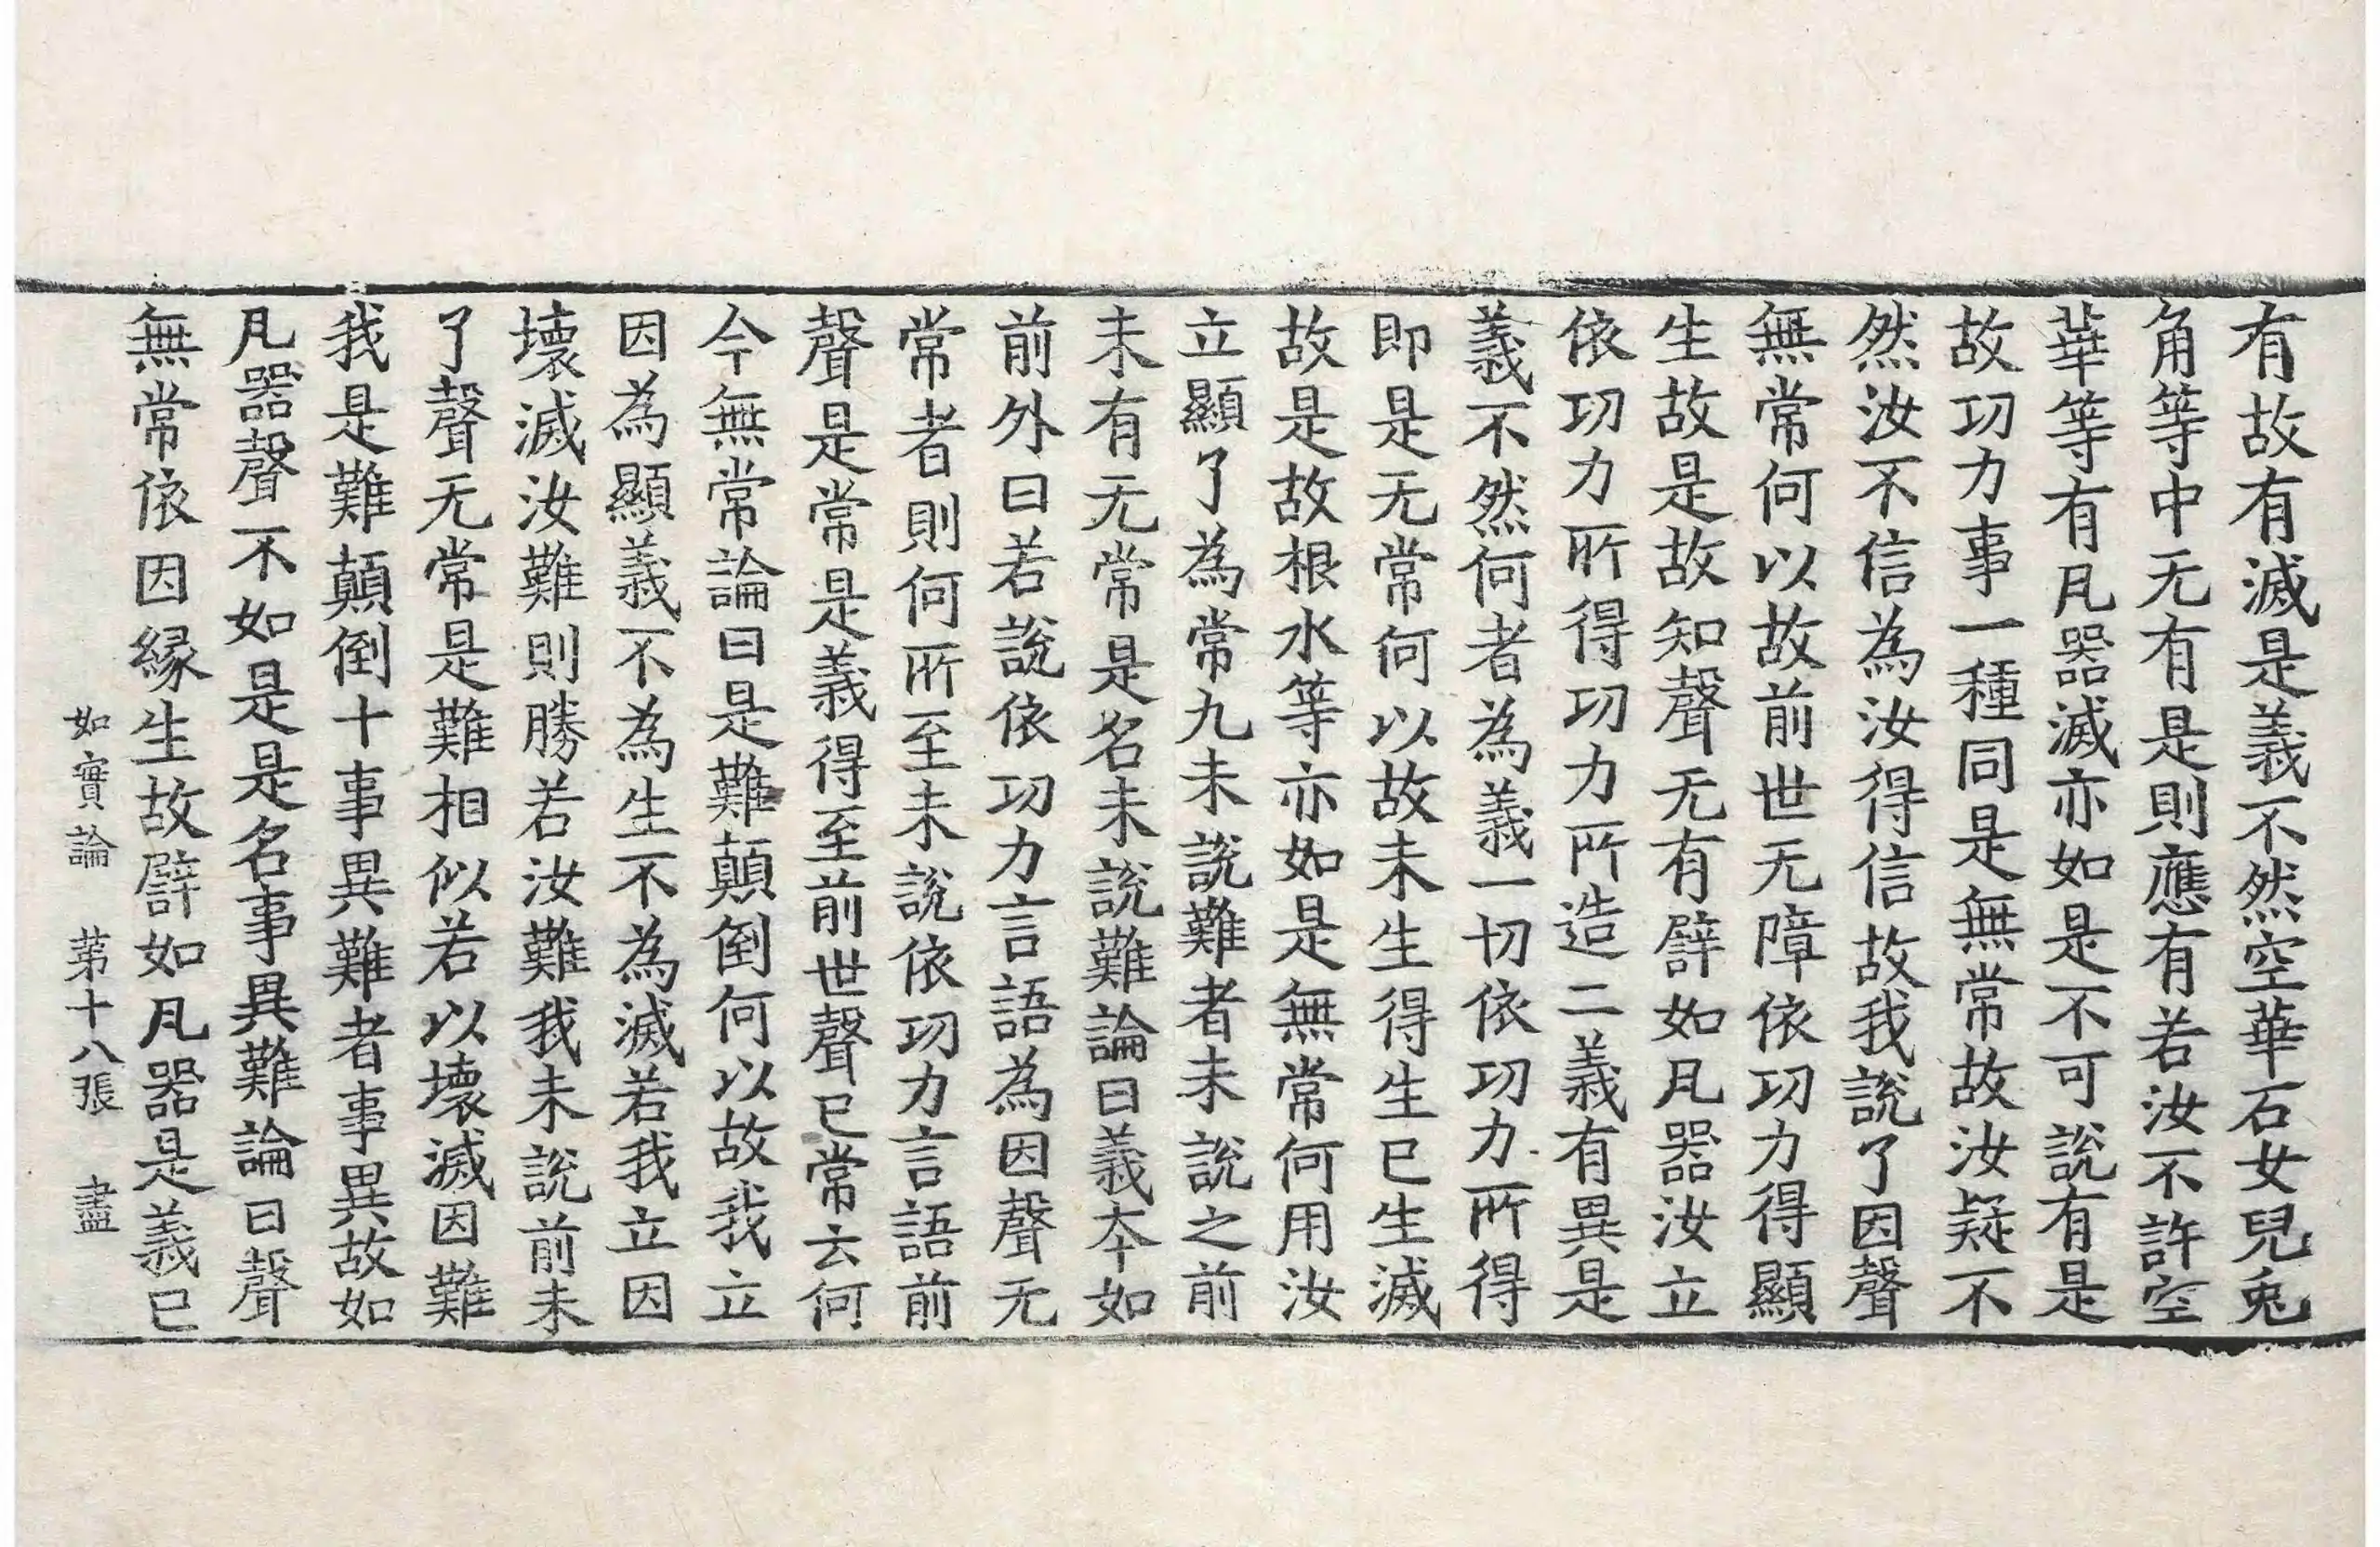 有故有滅是義不然空華石女兒兎
角等中无有是則應有若汝不許空
華等有凡器滅亦如是不可說有是
故功力事一種同是無常故汝疑不
然汝不信為汝得信故我說了因聲
無常何以故前世无障依功力得顯
生故是故知聲无有譬如凡器汝立
依功力所得功力所造二義有異是
義不然何者為義一切依功力所得
即是无常何以故未生得生已生滅
故是故根水等亦如是無常何用汝
立顯了為常九未說難者未說之前
未有无常是名未說難論曰義夲如
前外曰若說依功力言語為因聲无
常者則何所至未說依功力言語前
聲是常是義得至前世聲已常去何
今無常論曰是難顛倒何以故我立
因為顯義不為生不為滅若我立因
壞滅汝難則勝若汝難我未說前未
了聲无常是難相似若以壞滅因難
我是難顛倒十事異難者事異故如
凡器聲不如是是名事異難論曰聲
無常依因緣生故譬如凡器是義已
如實論 苐十八張 盡